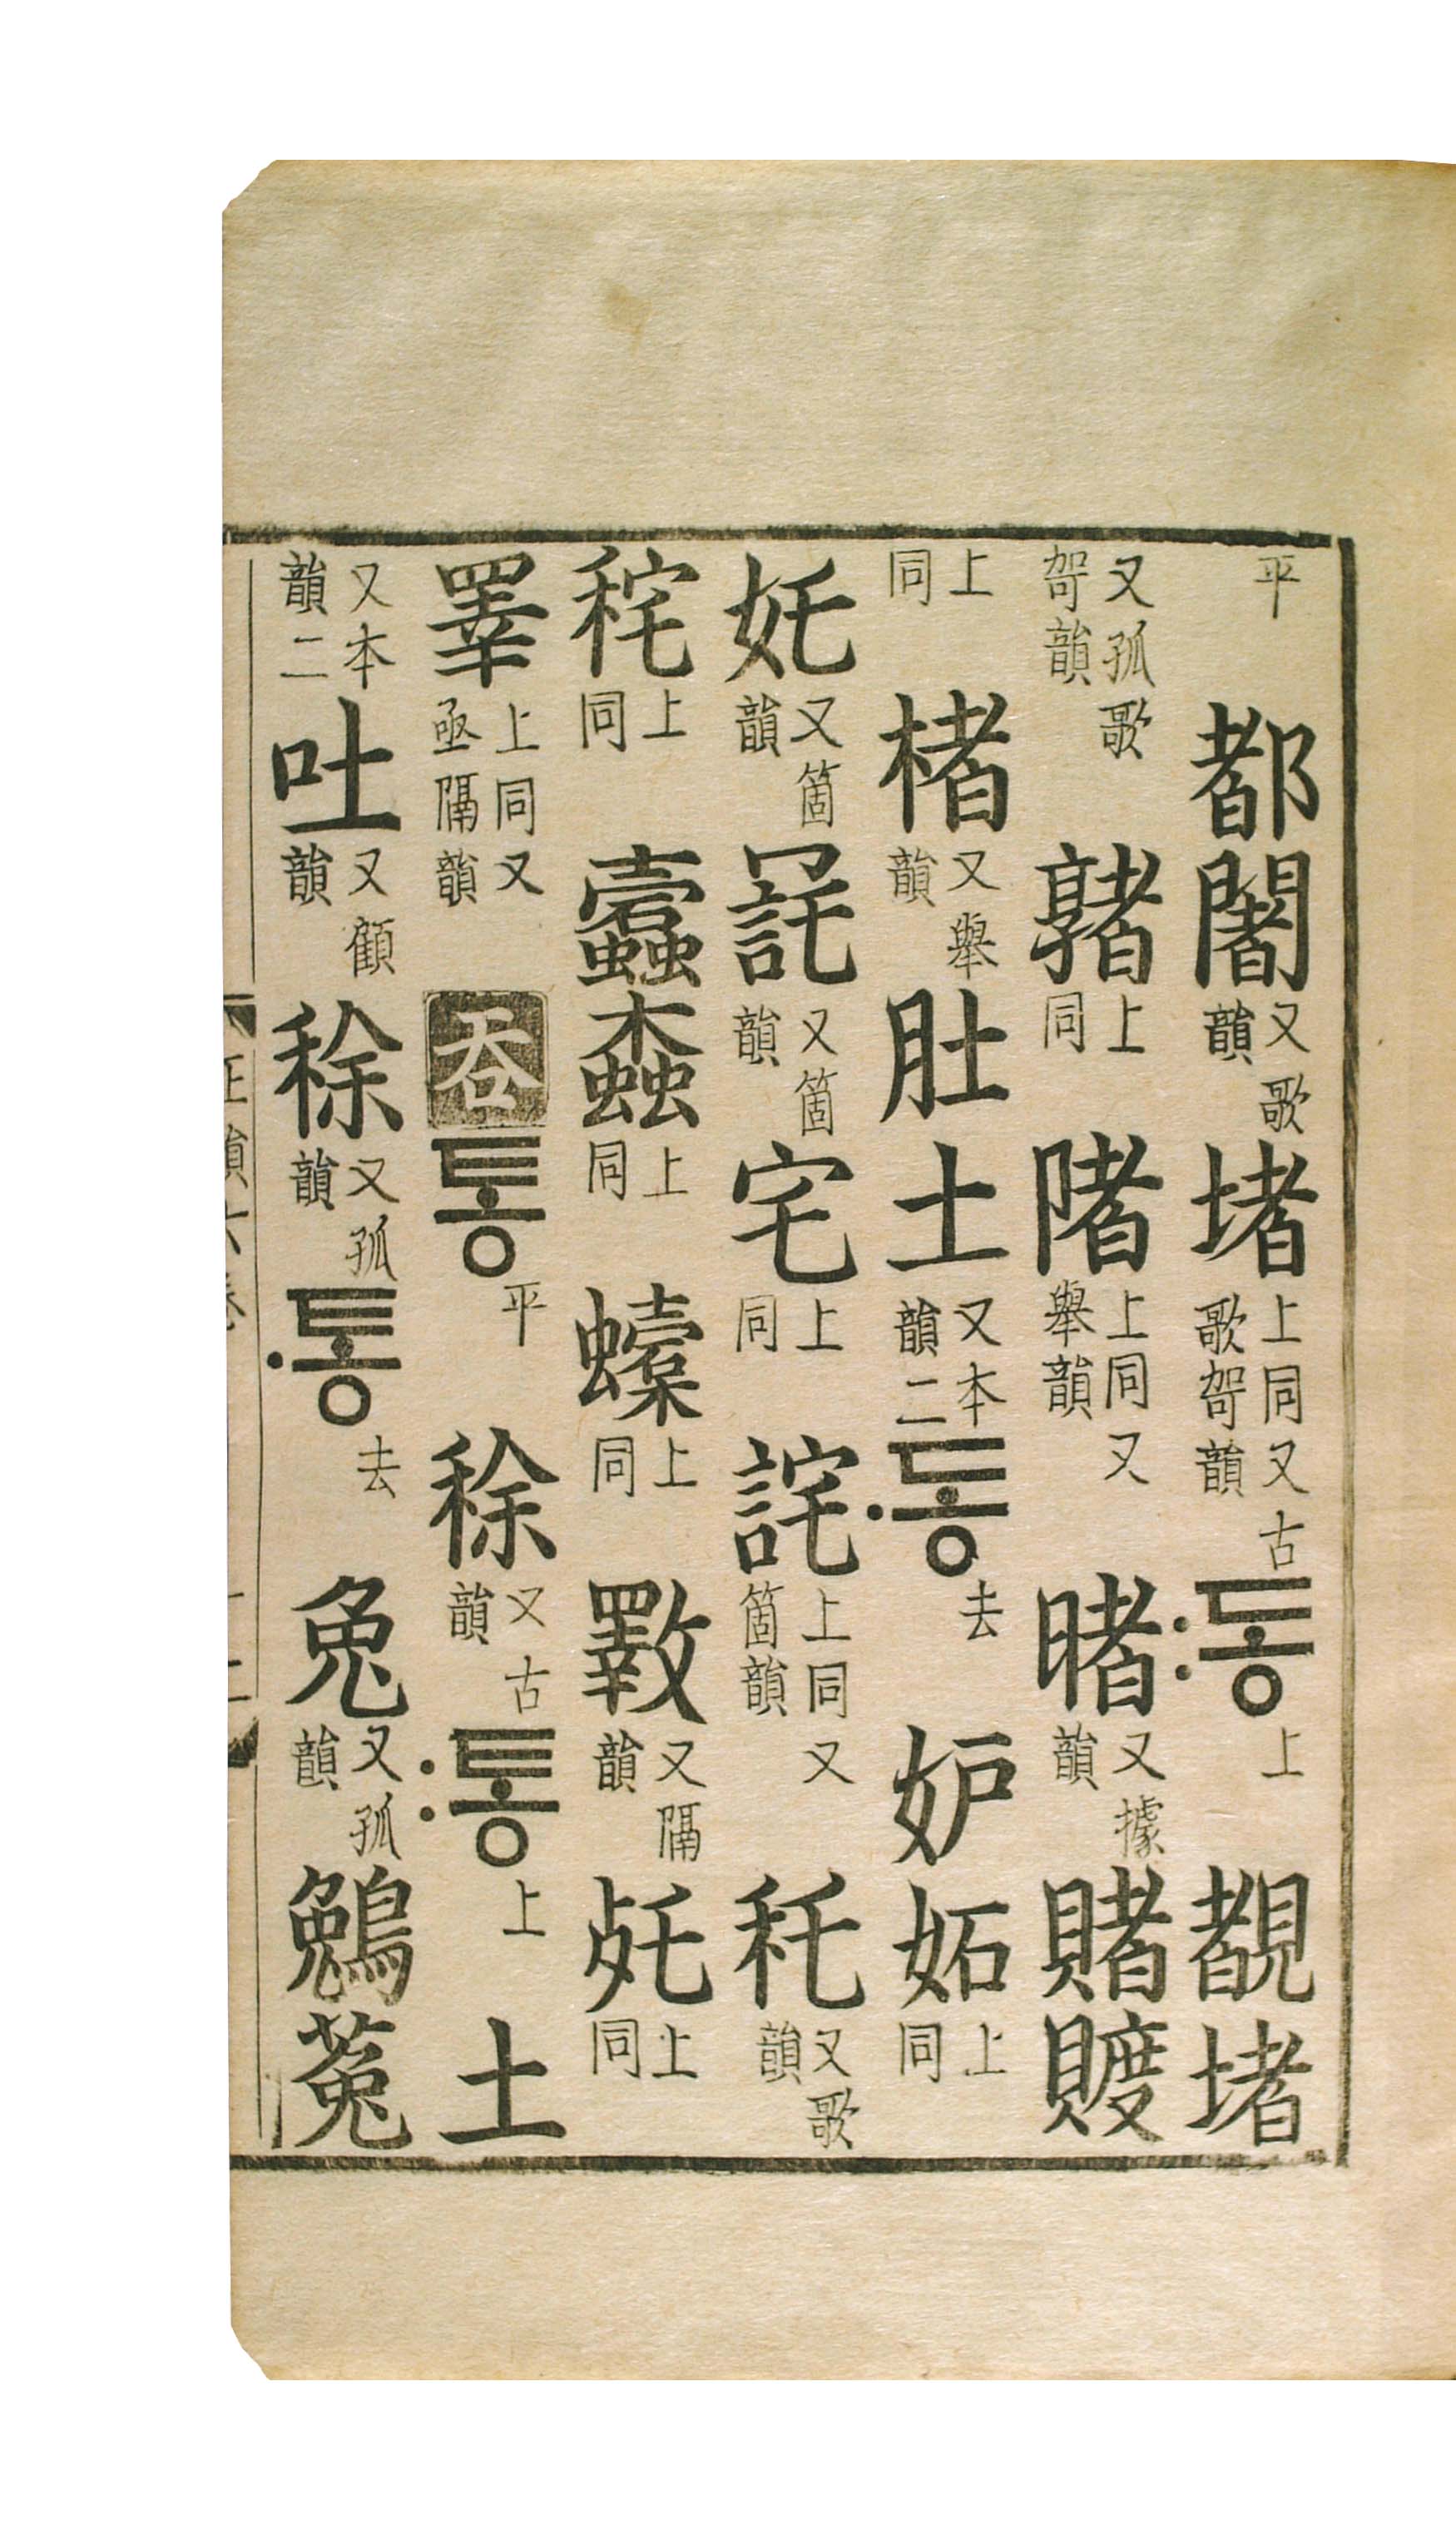 平都闍又歌韻堵上同又古歌哿韻〯동上覩堵
又孤歌哿韻䐗上同陼上同又舉韻睹又據韻賭贕
上同楮又舉韻肚土又本韻二〮동去妒妬上同
奼又箇韻託又箇韻宅上同詫上同又箇韻秅又歌韻
秺上同蠹螙上同蠧上同斁又隔韻㱠上同
睪上同又亟隔韻吞통平稌又古韻〯통上土
又本韻二吐又顧韻稌又孤韻〮통去兔又孤韻鵵菟
正韻六卷